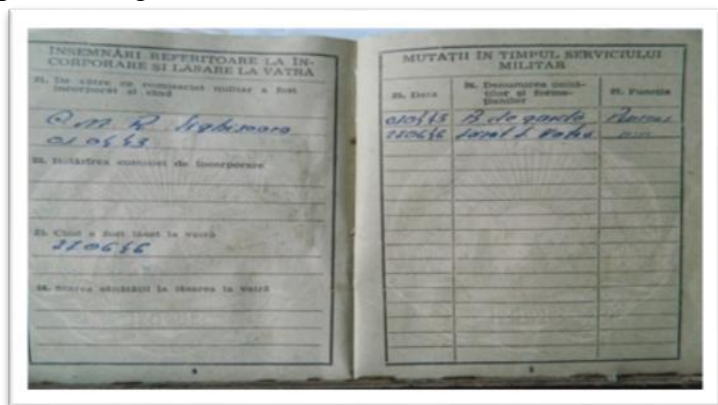 ÎNSEMNĂRI REFERITOARE LA ÎN-
CORPORARE ȘI LĂSARE LA VATRĂ
21. De către ce comisariat militar a fost
incorporat și cînd
Sighisoara
22. Hotărîrea comisiei de încorporare
23. Cînd a fost lăsat la vatră
220646
24. Starea sănătății la lăsarea la vatră
MUTAȚII ÎN TIMPUL SERVICIULUI
MILITAR
25. Data
26. Denumirea unită-
ților și forma-
țiunilor
27. Funcția
B. de gardă
220646 Lăsat l. Vatră